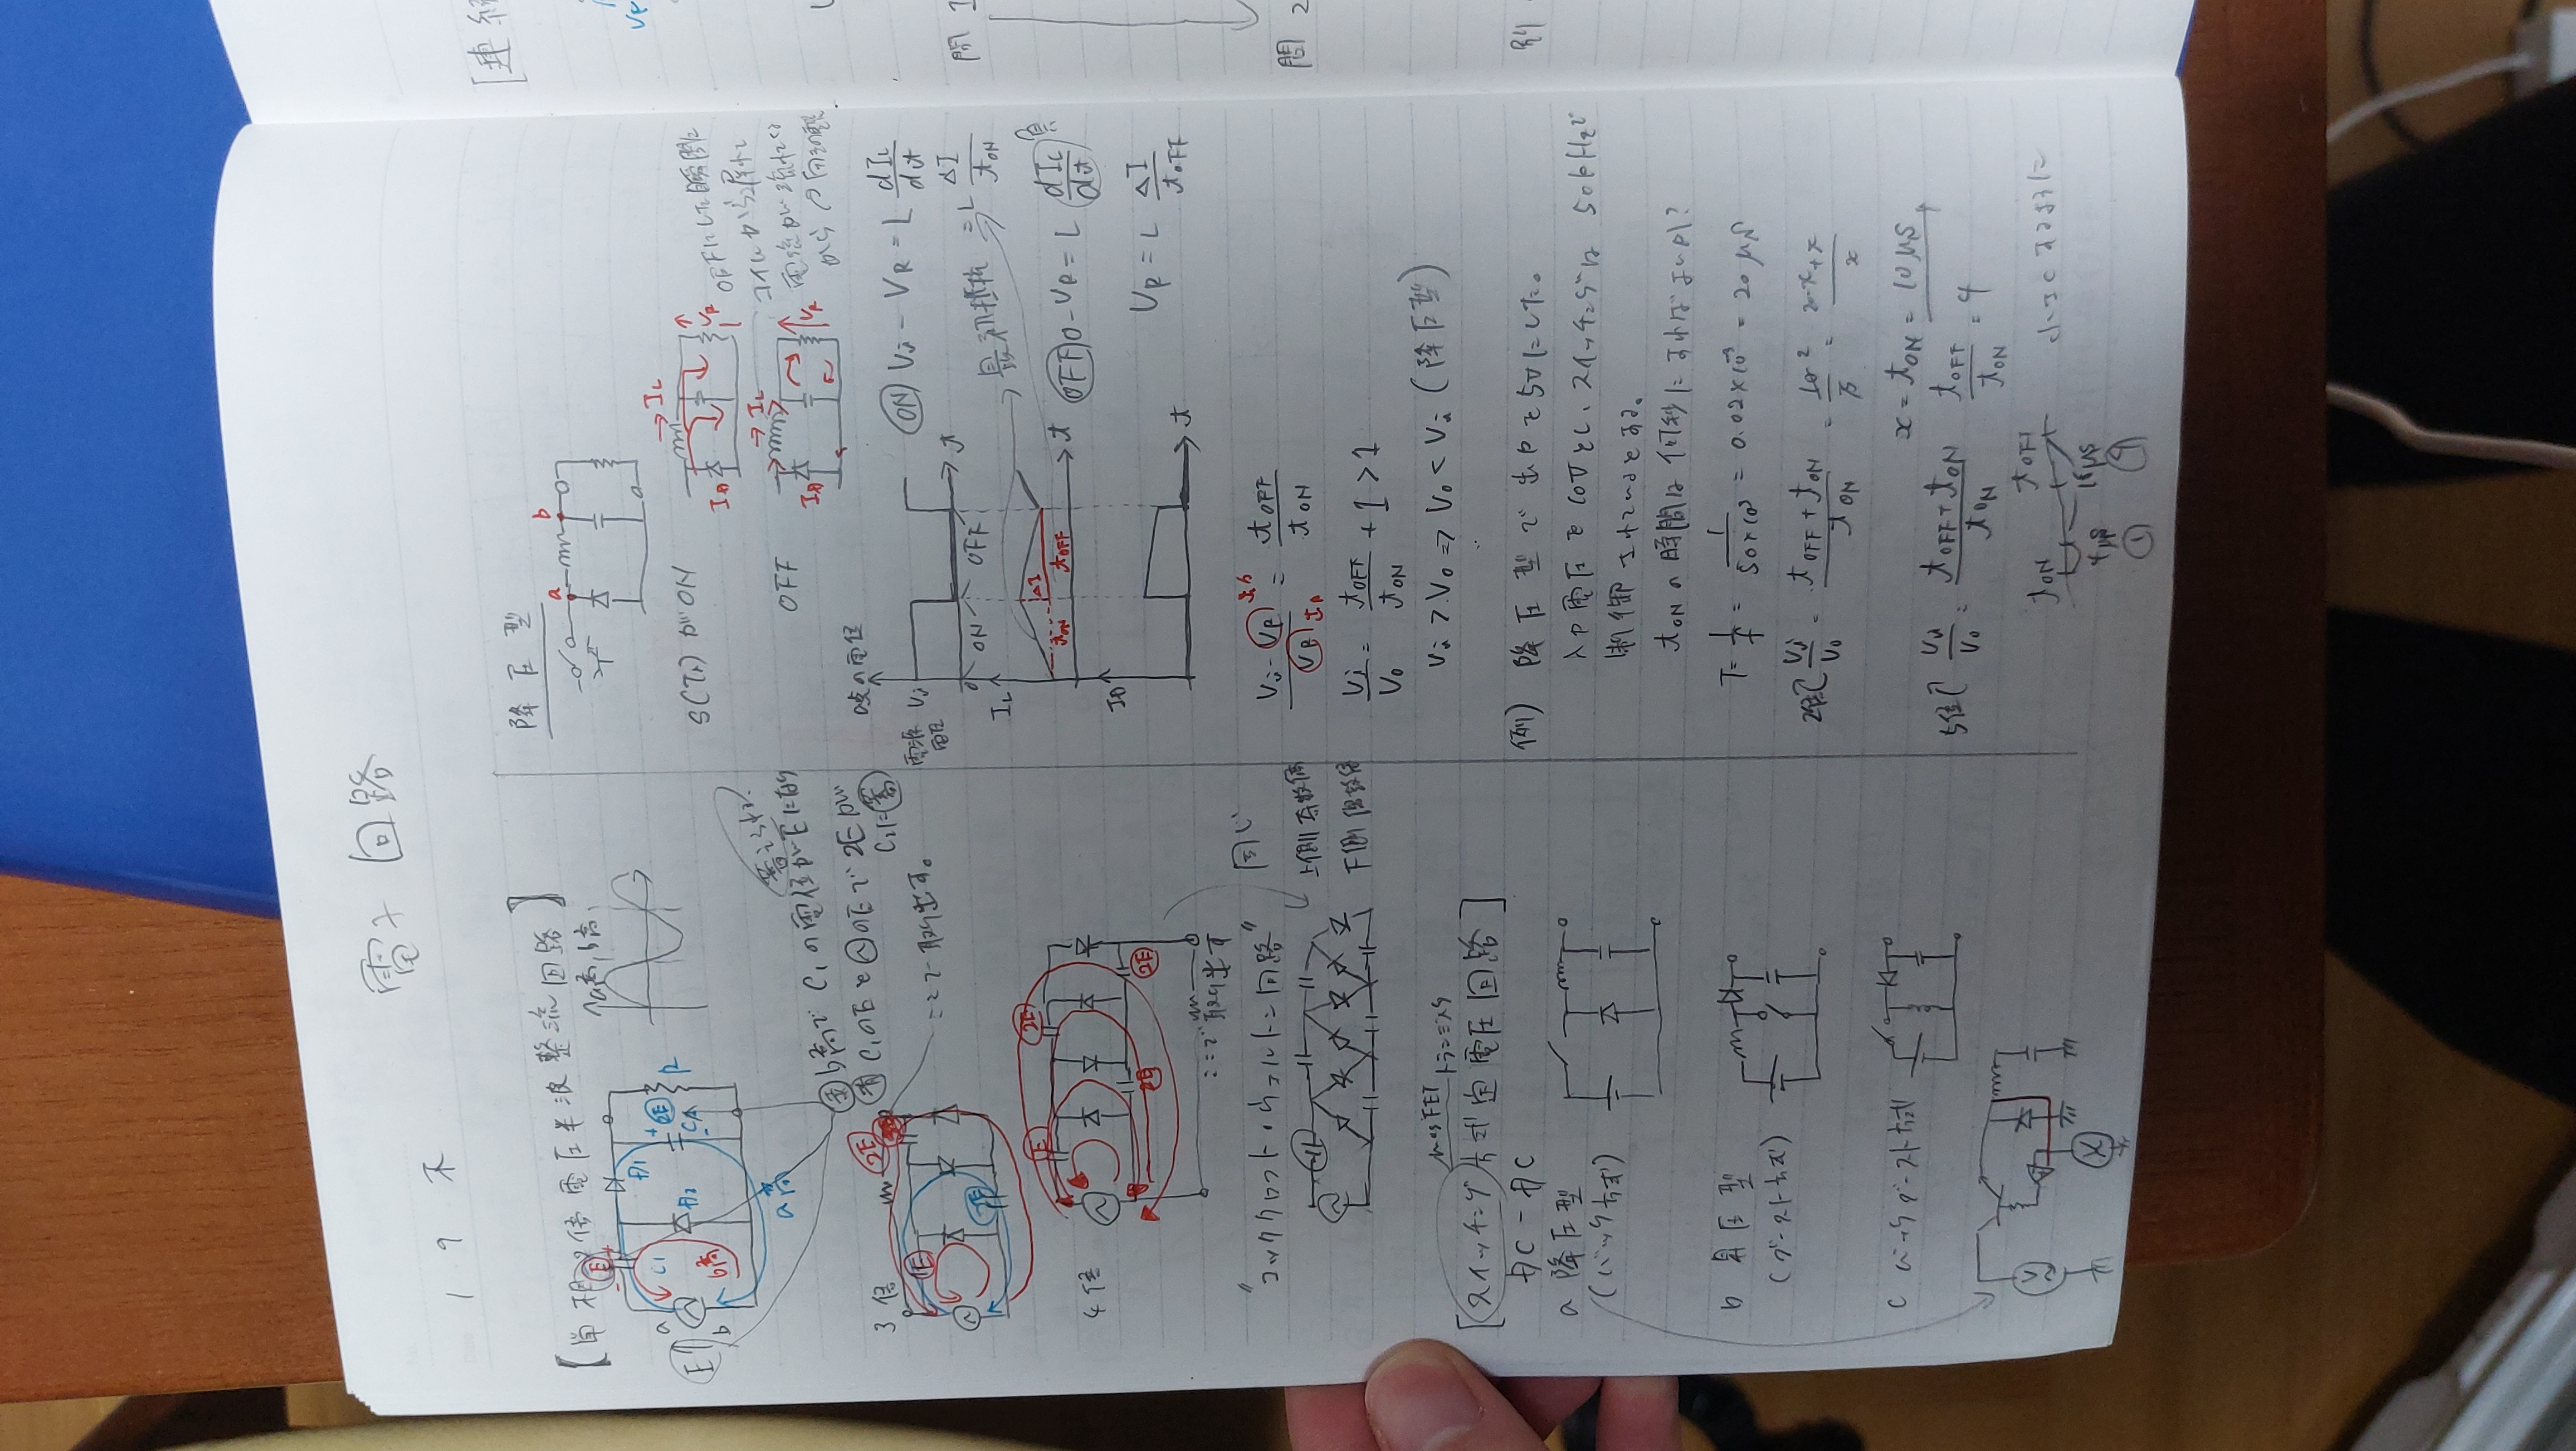 電子回路
1 9 木
【単相2倍電圧半波整流回路】
E
a高, b高,
C1
D1
D2
2E
R
a
b
E
b高
a高
蓄えられ
赤 b高で C1の電位がEになり
青 C1のEと〜のEで2Eが
C2に蓄
ここで取り出す。
3倍
2E
E
2E
4倍
E
2E
2E
2E
ここで取り出す
"コッククロフト・ウォルトン回路"
同じ
上側 奇数倍
下側 偶数倍
mosFET
トランジスタ
[スイッチング方式定電圧回路]
DC-DC
a 降圧型
(バック方式)
b 昇圧型
(ブースト方式)
c バックブースト方式
V
降圧型
a
b
S(Tr)がON
→IL
ID
VR
OFFにした瞬間に
コイルから遅れて
電流が流れてくる
から
→IL
OFF
ID
VR
a点の電位
電源
電圧
Vi
0
ON
OFF
t
ON Vi - VR = L dIL/dt
最初抵抗
= L ΔI/tON
IL
ΔI
tON
tOFF
t
OFF 0 - VR = L dIL/dt 負
ID
t
VR = L ΔI/tOFF
(Vi - VR)/VR = tOFF/tON
出力
出力
Vi/Vo = tOFF/tON + 1 > 1
Vi > Vo ⇒ Vo < Vi (降圧型)
例) 降圧型で出力を5Vにした。
入力電圧を10Vとし、スイッチングは 50kHzで
制御されているとする。
tONの時間は何秒にすればよいか?
T = 1/f = 1/(50×10³) = 0.02×10⁻³ = 20 μs
2倍 Vi/Vo = (tOFF + tON)/tON = 10/5 2 = (20-x+x)/x
x = tON = 10μs
5倍 Vi/Vo = (tOFF + tON)/tON tOFF/tON = 4
tON
tOFF
4μs
16μs
1
4
小さくするように
[連続
問 1
問 2
別